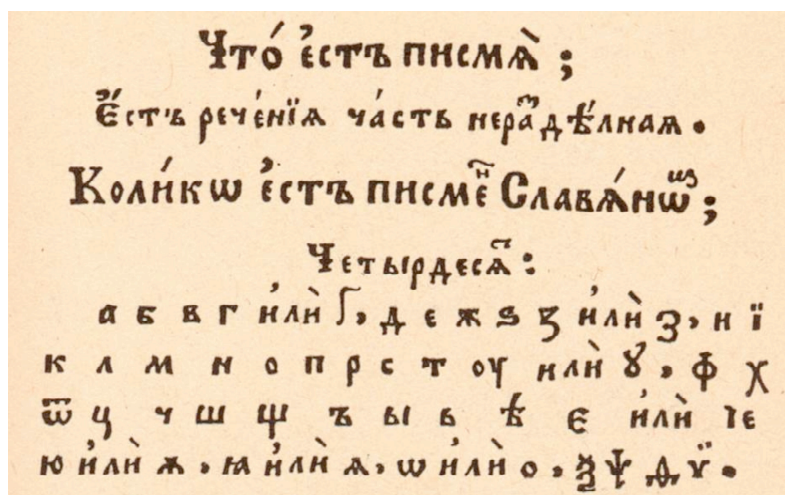 Что́ є҆́стъ писмѧ̀;
Є҆́стъ рече́нїѧ ча́сть нераⷥдѣ́лнаѧ.
Коли́кѡ є҆́стъ писмеⷩ҇ Славѧ́нѡⷨ;
Четырдесѧⷮ:
а б в г и҆лѝ ґ, д є ж ѕ ꙁ и҆лѝ з, и ї
к л м н о п р с т оу и҆лѝ ꙋ, ф х
ѿ ц ч ш щ ъ ы ь ѣ є и҆лѝ ѥ
ю и҆лѝ ѫ, ꙗ и҆лѝ ѧ, ѡ и҆лѝ о, ѯ ѱ ѳ ѵ̈.